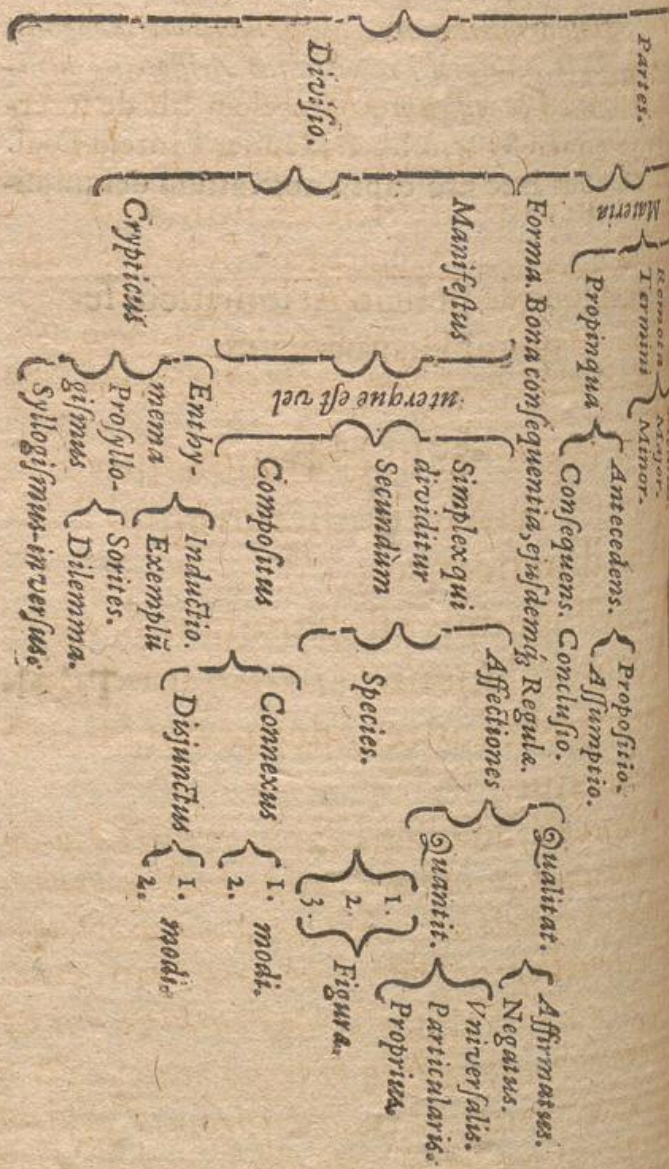 Partes.
Materia
Remota
Termini
Major.
Minor.
Propinqua
Antecedens.
Propositio.
Assumptio.
Consequens. Conclusio.
Forma. Bona consequentia, ejusdemq́; Regulæ.
Divisio.
Manifestus
Crypticus
uterque est vel
Simplex qui
dividitur
Secundùm
Affectiones
Qualitat.
Affirmatus.
Negatus.
Quantit.
Vniversalis.
Particularis.
Proprius.
Species.
1.
2.
3.
Figuræ.
Compositus
Connexus
1.
2.
modi.
Disjunctus
1.
2.
modi.
Enthy-
mema
Inductio.
Exemplū
Prosyllo-
gismus
Sorites.
Dilemma.
Syllogismus inversus.